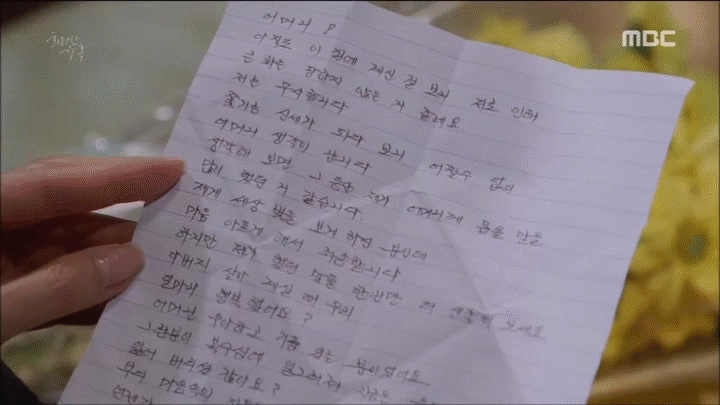 MBC
어머니?
아직도 이 집에 계신 걸 보니 저로 인해
큰 화는 당하지 않은 거 같네요
저는 무사합니다
쫓기는 신세가 되다 보니 어쩔수 없이
어머니 생각이 납니다
생각해 보면 그 동안 제가 어머니께 몹쓸 말을
많이 했던 거 같습니다.
제게 세상 빛을 보게 하신 분인데
마음 아프게 해서 죄송합니다
하지만 제가 했던 말들 한번만 더 생각해 보세요
아버지 살아 계실 때 우리
얼마나 행복했어요?
어머닌 우아하고 기품 있는 분이었어요
그런분이 복수심에 일그러져 지금은
잃어 버리셨잖아요?
부디 마음속의